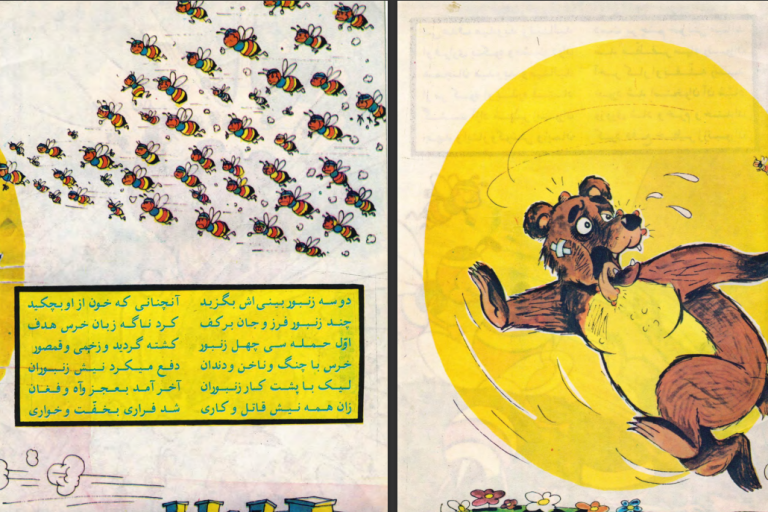 دو سه زنبور بینی اش بگزید آنچنانی که خون از او بچکید
چند زنبور فرز و جان بر کف کرد ناگه زبان خرس هدف
اوّل حمله سی چهل زنبور کشته گردید و زخمی و قمصور
خرس با چنگ و ناخن و دندان دفع میکرد نیش زنبوران
لیک با پشت کار زنبوران آخر آمد بعجز و آه و فغان
زان همه نیش قاتل و کاری شد فراری بخفّت و خواری